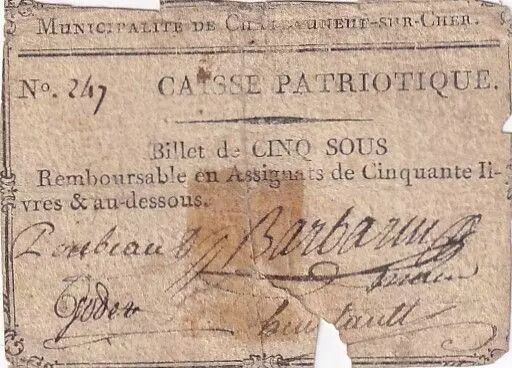 MUNICIPALITÉ DE CHATEAUNEUF-SUR-CHER.
No. 247 CAISSE PATRIOTIQUE.
Billet de CINQ SOUS
Remboursable en Assignats de Cinquante li-
vres & au-dessous.
Barbarin